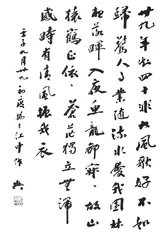 卅九年知四十非大風歌好不如
歸驚人事業隨流水愛我園林
想落暉入夜魚龍都寂寂故山
猿鶴正依依蒼茫獨立無端
感時有清風振我衣
壬子九月廿九初度 江中作 興